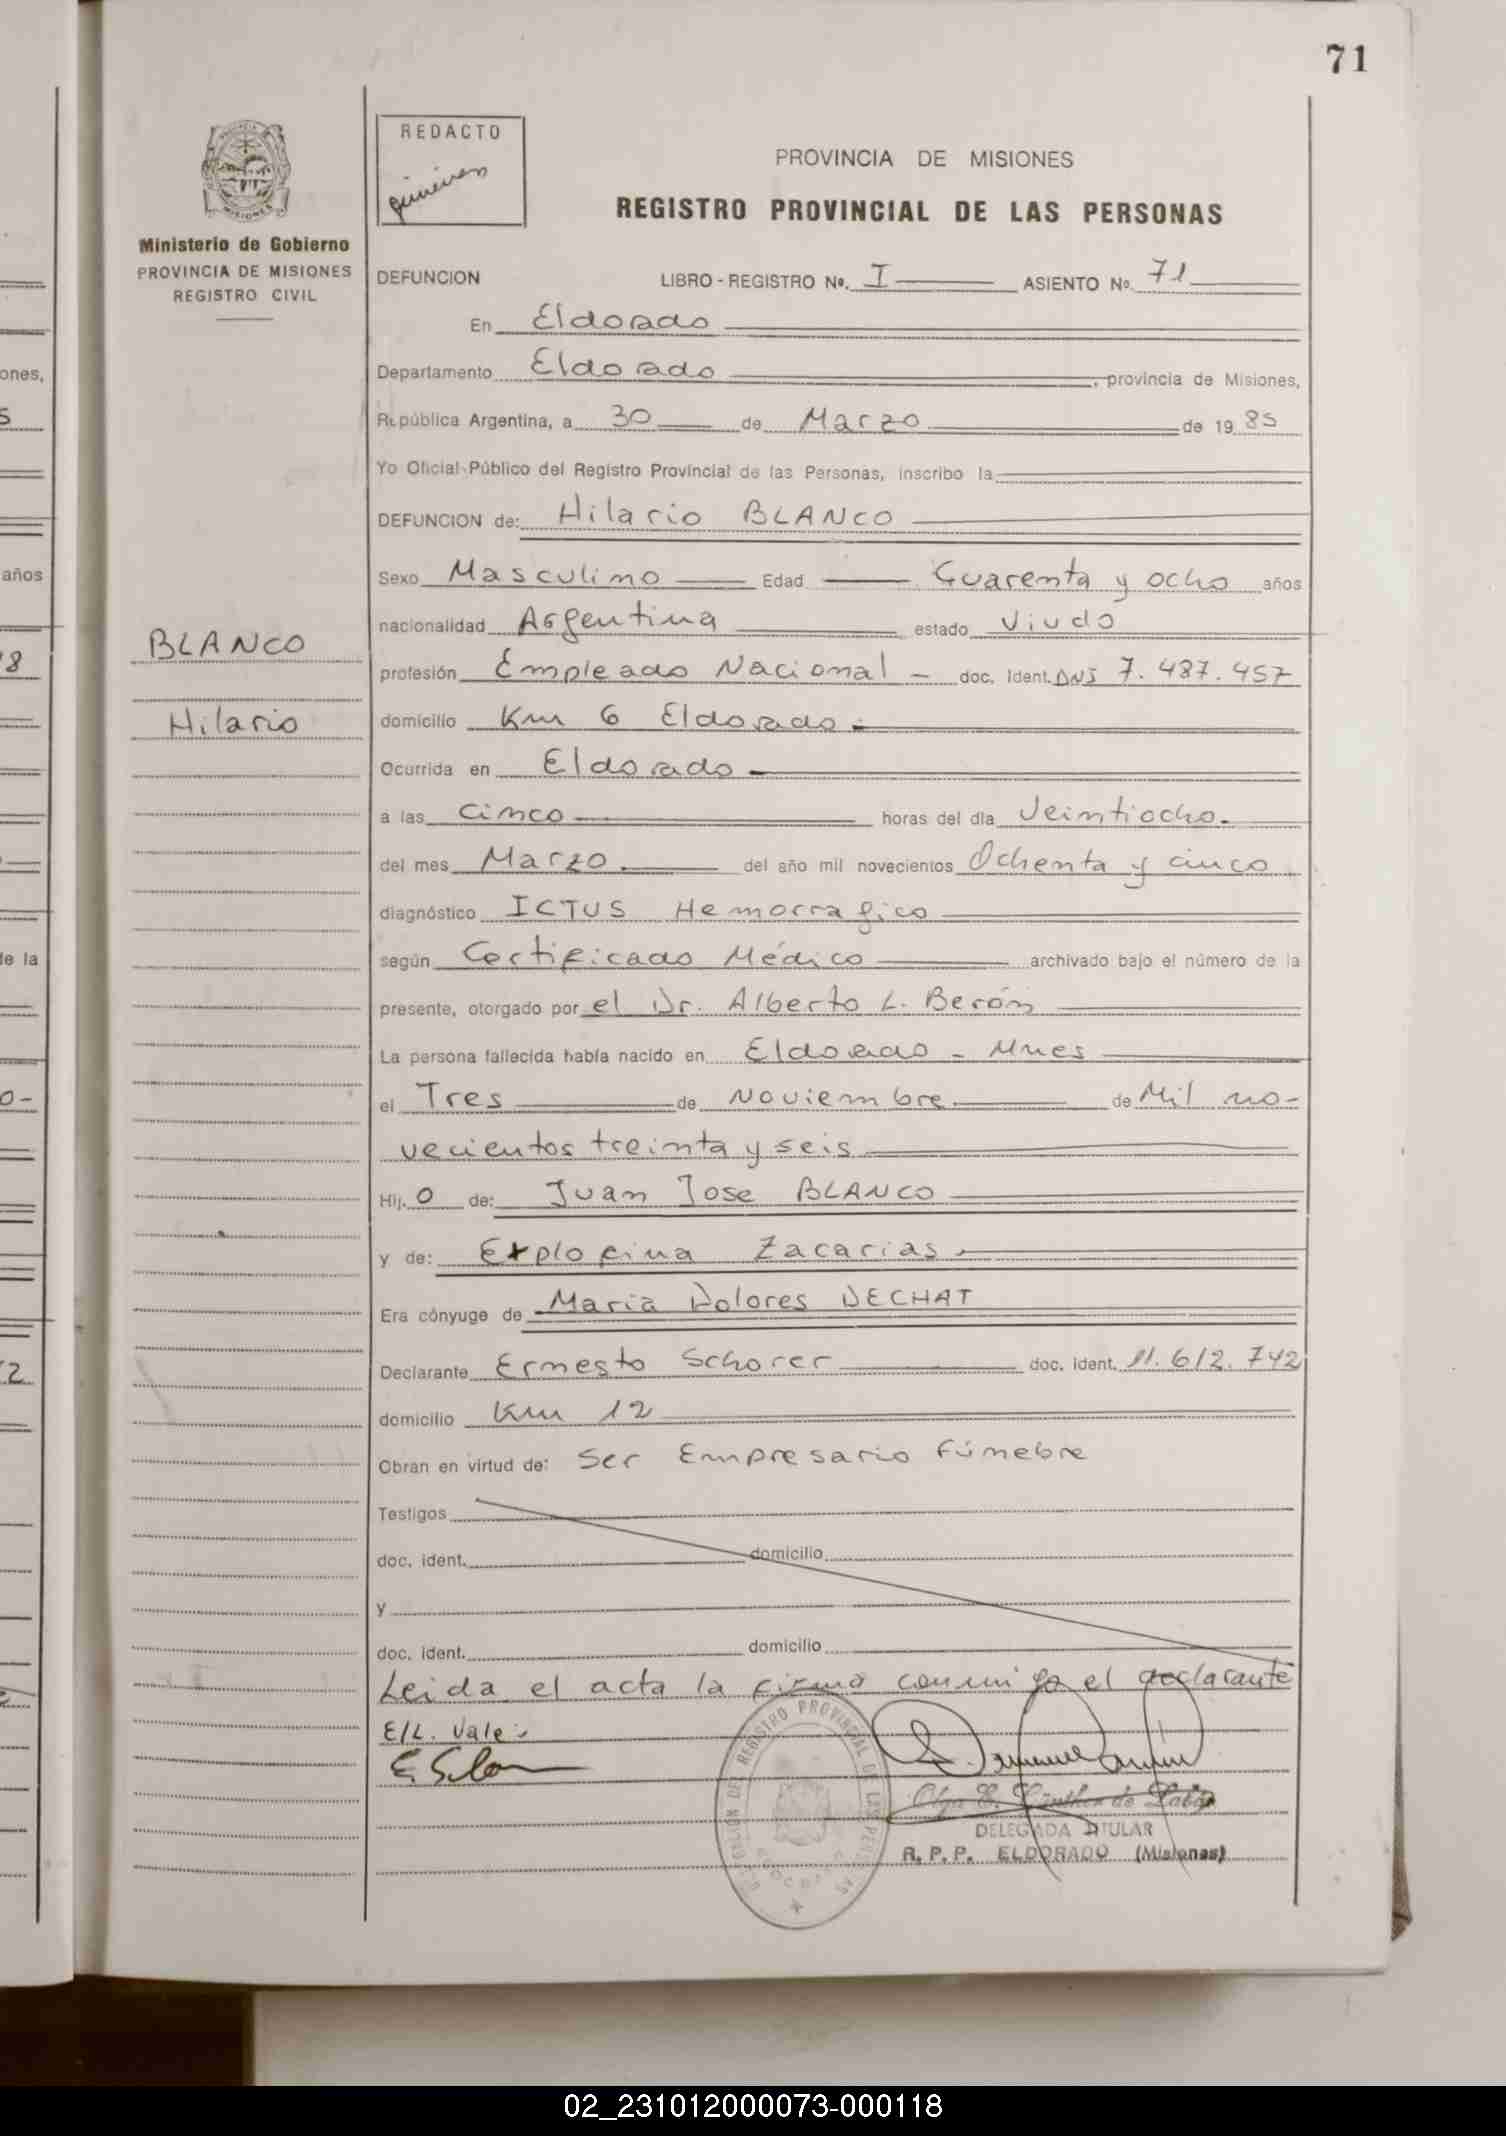 71
REDACTO
PROVINCIA DE MISIONES
REGISTRO PROVINCIAL DE LAS PERSONAS
Ministerio de Gobierno
PROVINCIA DE MISIONES
REGISTRO CIVIL
DEFUNCION LIBRO - REGISTRO Nº. I ASIENTO Nº. 71
En Eldorado
ones,
Departamento Eldorado, provincia de Misiones,
República Argentina, a 30 de Marzo de 1985
Yo Oficial Público del Registro Provincial de las Personas, inscribo la
DEFUNCION de: Hilario BLANCO
años
Sexo Masculino Edad Cuarenta y ocho años
nacionalidad Argentina estado Viudo
BLANCO
profesión Empleado Nacional - doc. Ident. DNI 7.487.457
Hilario
domicilio Km 6 Eldorado.
Ocurrida en Eldorado
a las cinco horas del día Veintiocho.
del mes Marzo. del año mil novecientos Ochenta y cinco
diagnóstico ICTUS Hemorragico
de la
según Certificado Médico archivado bajo el número de la
presente, otorgado por el Dr. Alberto L. Berón
La persona fallecida había nacido en Eldorado - Mnes
el Tres de Noviembre de Mil no-
vecientos treinta y seis
Hij. o de: Juan Jose BLANCO
y de: Explofina Zacarias.
Era cónyuge de Maria Dolores DECHAT
Declarante Ernesto Schorer doc. ident. 11.612.742
domicilio Km 12
Obran en virtud de: Ser Empresario Fúnebre
Testigos
doc. ident. domicilio
y
doc. ident. domicilio
Leida el acta la firma conmigo el declarante
E/L. Vale:
REGISTRO PROVINCIAL DE LAS PERSONAS
Olga E. Günther de
DELEGADA TITULAR
R. P. P. ELDORADO (Misiones)
02_231012000073-000118